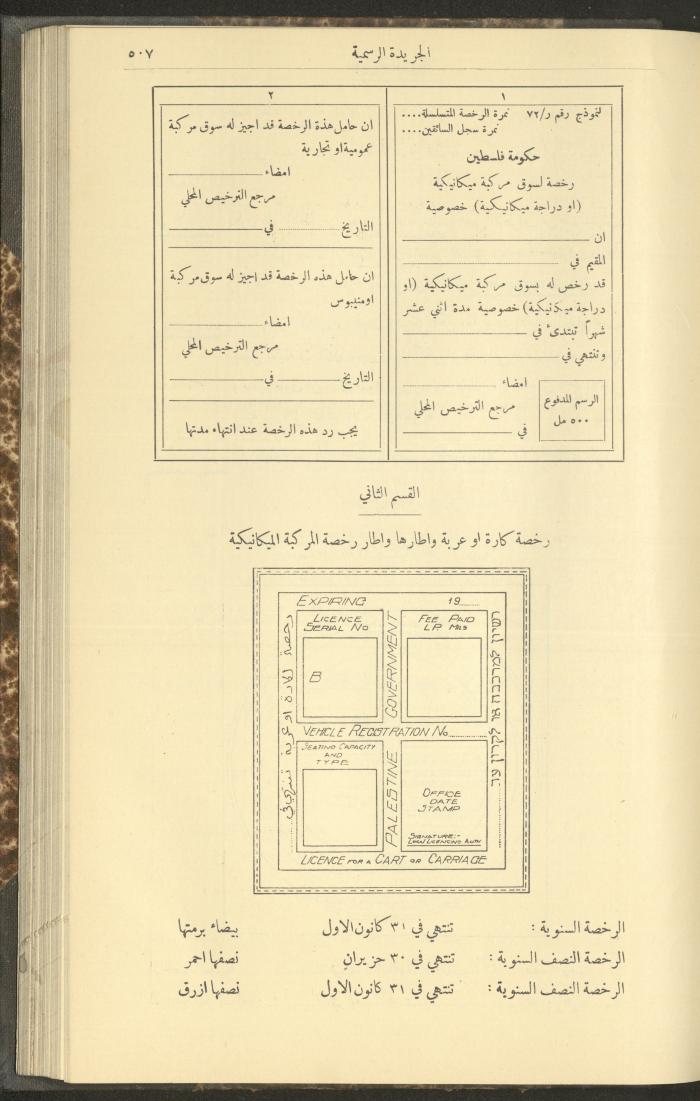 الجريدة الرسمية
٥٠٧
١
نموذج رقم ر/٧٢ نمرة الرخصة المتسلسلة....
نمرة سجل السائقين....
حكومة فلسطين
رخصة لسوق مركبة ميكانيكية
(او دراجة ميكانيكية) خصوصية
ان
المقيم في
قد رخص له بسوق مركبة ميكانيكية (او
دراجة ميكانيكية) خصوصية مدة اثني عشر
شهراً تبتدئ في
وتنتهي في
الرسم المدفوع
٥٠٠ مل
امضاء
مرجع الترخيص المحلي
في
٢
ان حامل هذة الرخصة قد اجيز له سوق مركبة
عمومية او تجارية
امضاء
مرجع الترخيص المحلي
التاريخ في
ان حامل هذه الرخصة قد اجيز له سوق مركبة
اومنيبوس
امضاء
مرجع الترخيص المحلي
التاريخ في
يجب رد هذه الرخصة عند انتهاء مدتها
القسم الثاني
رخصة كارة او عربة واطارها واطار رخصة المركبة الميكانيكية
EXPIRING 19
LICENCE
SERIAL No
B
FEE PAID
LP MILS
PALESTINE GOVERNMENT
VEHICLE REGISTRATION No
SEATING CAPACITY
AND
TYPE
OFFICE
DATE
STAMP
SIGNATURE:-
LOCAL LICENCING AUTH
LICENCE FOR A CART OR CARRIAGE
رخصة لكارة او عربة تنتهي في
רשיון למרכבה או לקרון עד
الرخصة السنوية : تنتهي في ٣١ كانون الاول بيضاء برمتها
الرخصة النصف السنوية : تنتهي في ٣٠ حزيران نصفها احمر
الرخصة النصف السنوية : تنتهي في ٣١ كانون الاول نصفها ازرق